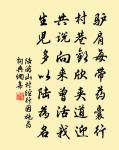 驴肩每带药囊行
村巷欢欣夹道迎
共说向来曾活我
生儿多以陆为名
陆游山村经行因施药
词典网集